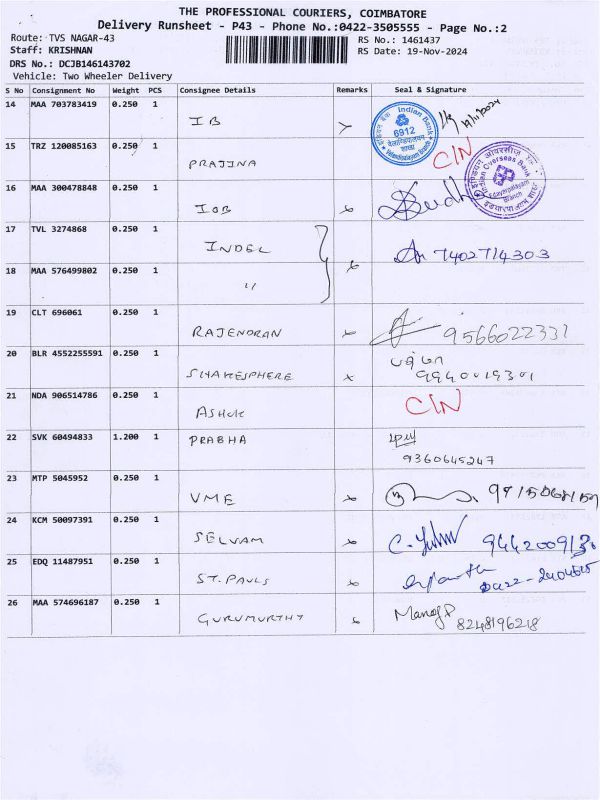 THE PROFESSIONAL COURIERS, COIMBATORE
Delivery Runsheet - P43 - Phone No.:0422-3505555 - Page No.:2
Route: TVS NAGAR-43 RS No.: 1461437
Staff: KRISHNAN RS Date: 19-Nov-2024
DRS No.: DCJB146143702
Vehicle: Two Wheeler Delivery
S No Consignment No Weight PCS Consignee Details Remarks Seal & Signature
14 MAA 703783419 0.250 1 IB
Indian Bank 6912
15 TRZ 120085163 0.250 1 PRAJINA CIN
16 MAA 300478848 0.250 1 IOB
Indian Overseas Bank
Branch
17 TVL 3274868 0.250 1 INDEL 7402714303
18 MAA 576499802 0.250 1 "
19 CLT 696061 0.250 1 RAJENDRAN 9566022331
20 BLR 4552255591 0.250 1 SHAKESPHERE 9940019301
21 NDA 906514786 0.250 1 ASHOK CIN
22 SVK 60494833 1.200 1 PRABHA
9360645247
23 MTP 5045952 0.250 1 VME
24 KCM 50097391 0.250 1 SELVAM
25 EDQ 11487951 0.250 1 ST.PAULS
26 MAA 574696187 0.250 1 GURUMURTHY Manoj P
8248196218